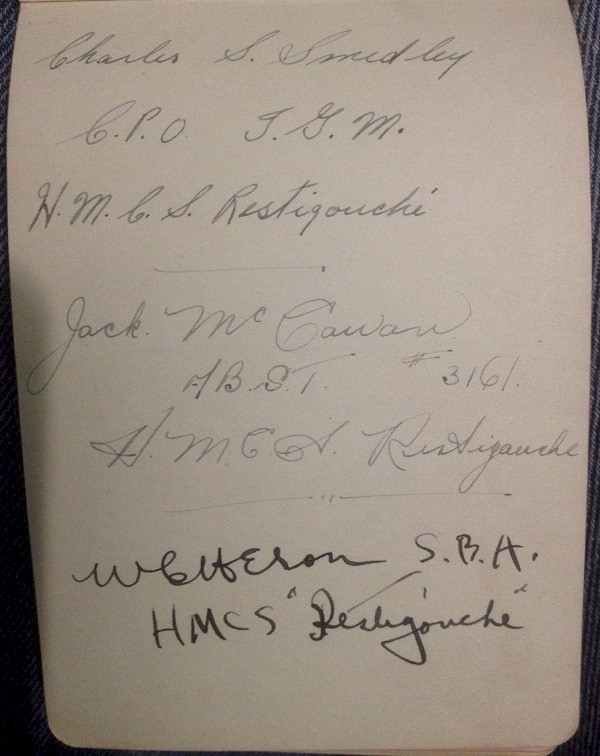 Charles S. Smedley
C.P.O. T.G.M.
H.M.C.S. Restigouché
Jack. Mc Cawan
A/B.S.T. #3161.
H.M.C.S. Restigauche
S.B.A.
HMCS "Restigouché"